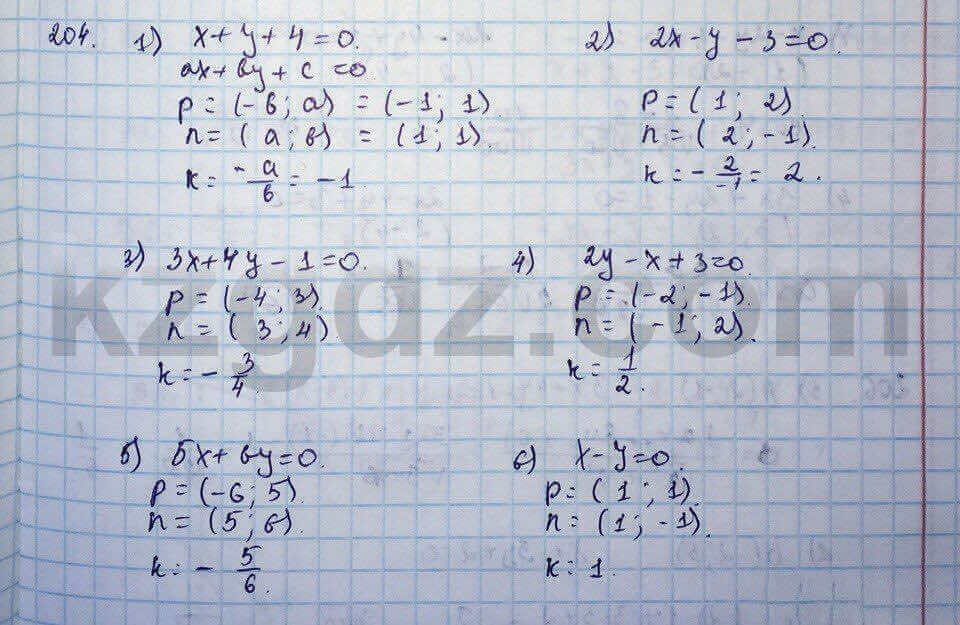 204. 1) x + y + 4 = 0.
ax + by + c = 0
p = (-b; a) = (-1; 1).
n = (a; b) = (1; 1).
k = -a/b = -1
2) 2x - y - 3 = 0.
p = (1; 2).
n = (2; -1).
k = -2/-1 = 2.
3) 3x + 4y - 1 = 0.
p = (-4; 3).
n = (3; 4)
k = -3/4.
4) 2y - x + 3 = 0.
p = (-2; -1).
n = (-1; 2).
k = 1/2.
5) 5x + 6y = 0.
p = (-6; 5)
n = (5; 6).
k = -5/6.
6) x - y = 0.
p = (1; 1).
n = (1; -1).
k = 1.
kzgdz.com